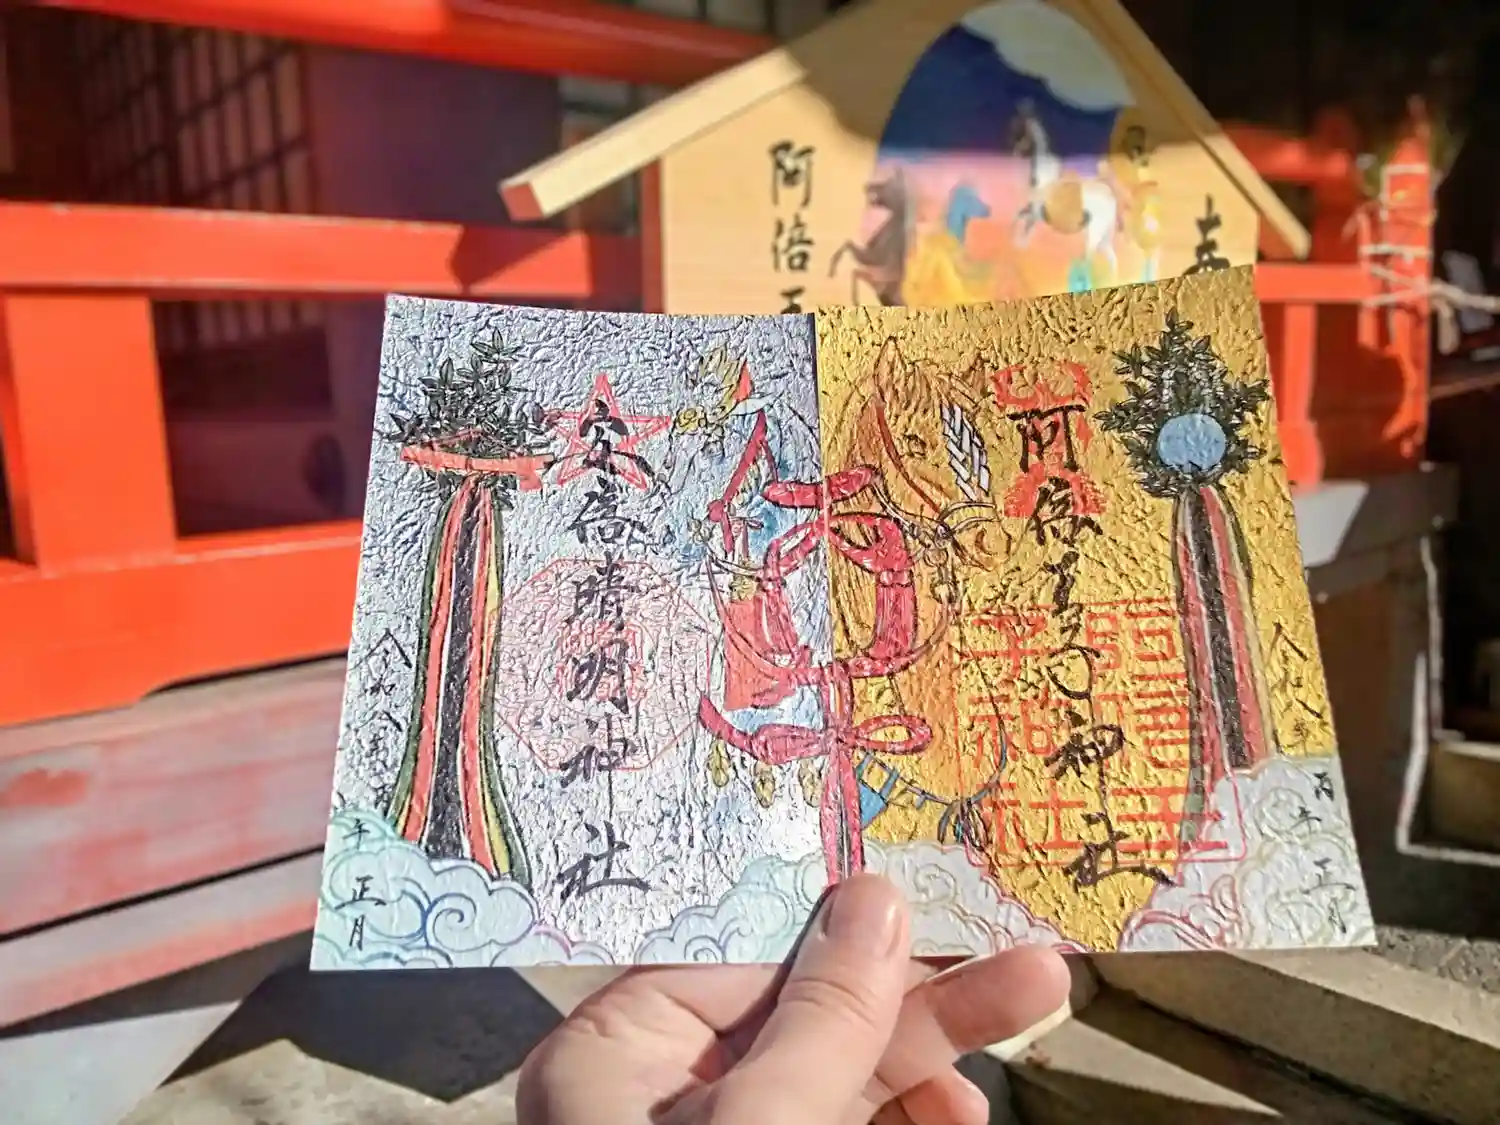 阿倍王
奉
安倍晴明神社
令和八年
午 正月
阿倍王子神社
令和八年
丙午 正月
阿倍王
子神社